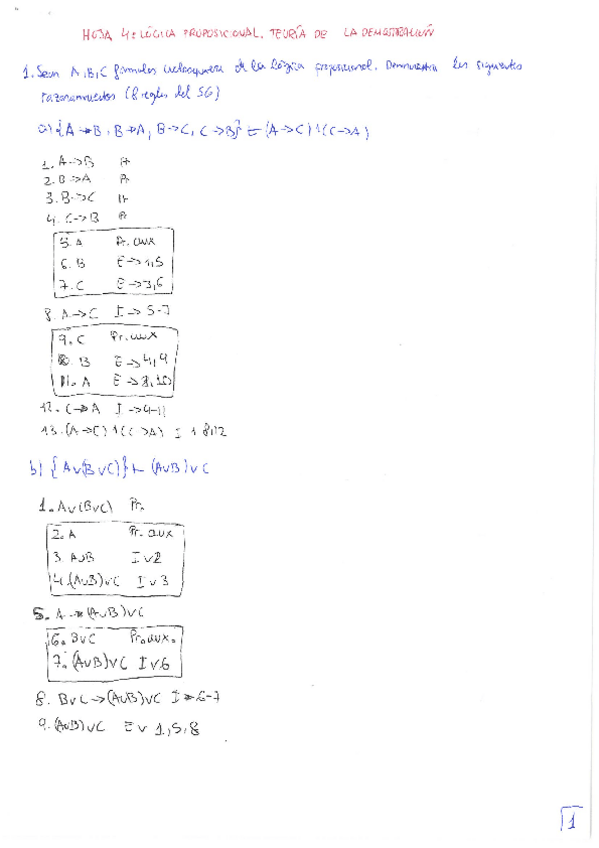 HOJA 4: LÓGICA PROPOSICIONAL. TEORÍA DE LA DEMOSTRACIÓN
1. Sean A, B, C fórmulas cualesquiera de la lógica proposicional. Demuestra los siguientes
razonamientos (8 reglas del SG)
a) {A→B, B→A, B→C, C→B} ⊢ (A→C)∧(C→A)
1. A→B Pr
2. B→A Pr
3. B→C Pr
4. C→B Pr
5. A Pr. aux
6. B E→1,5
7. C E→3,6
8. A→C I→ 5-7
9. C Pr. aux
10. B E→4,9
11. A E→
12. C→A I→
13. (A→C)∧(C→A) I∧ 8,12
b) {A∨(B∨C)} ⊢ (A∨B)∨C
1. A∨(B∨C) Pr.
2. A Pr. aux
3. A∨B I∨2
4. (A∨B)∨C I∨3
5. A→(A∨B)∨C
6. B∨C Pr. aux.
7. (A∨B)∨C I∨6
8. B∨C→(A∨B)∨C I→6-7
9. (A∨B)∨C E∨ 1,5,8
1